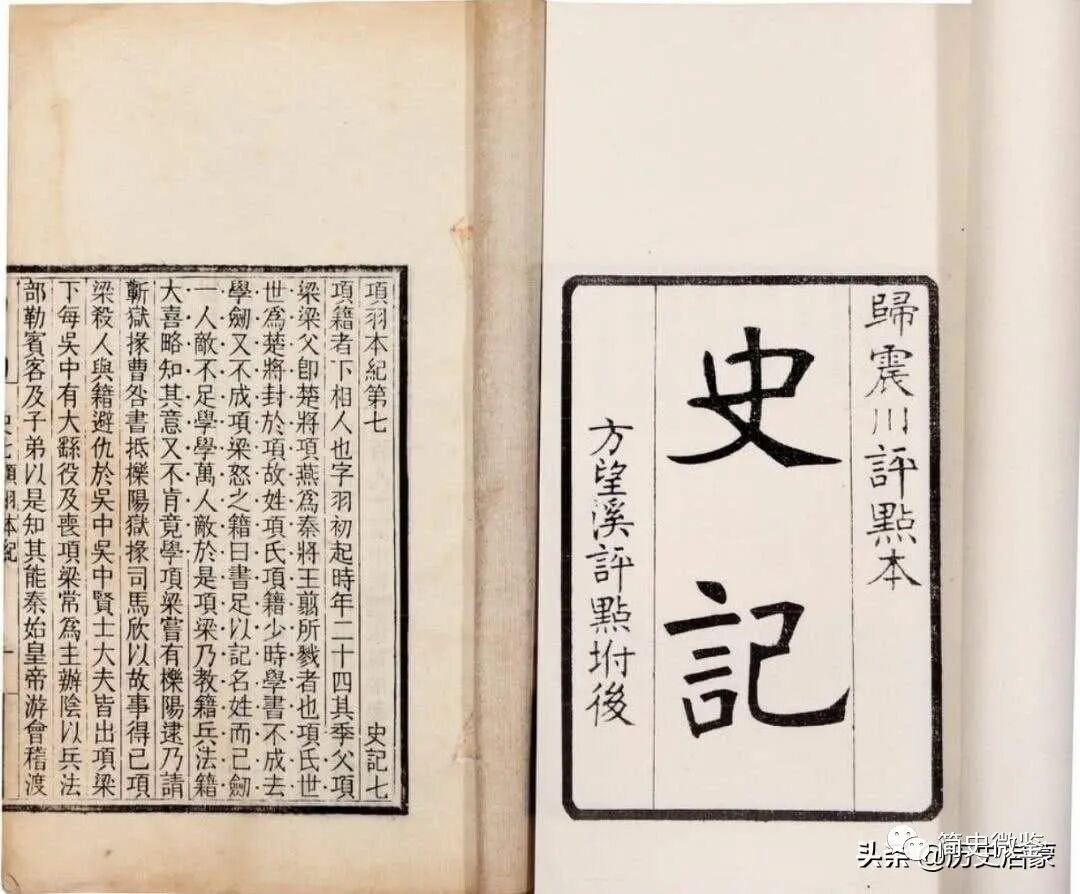 歸震川評點本
史記
方望溪評點坿後
項羽本紀第七 史記七
項籍者下相人也字羽初起時年二十四其季父項
梁梁父卽楚將項燕爲秦將王翦所戮者也項氏世
世爲楚將封於項故姓項氏項籍少時學書不成去
學劒又不成項梁怒之籍曰書足以記名姓而已劒
一人敵不足學學萬人敵於是項梁乃教籍兵法籍
大喜略知其意又不肯竟學項梁嘗有櫟陽逮乃請
蘄獄掾曹咎書抵櫟陽獄掾司馬欣以故事得已項
梁殺人與籍避仇於吳中吳中賢士大夫皆出項梁
下每吳中有大繇役及喪項梁常爲主辦陰以兵法
部勒賓客及子弟以是知其能秦始皇帝游會稽渡
史七項羽本紀
简史微鉴
头条@历史启蒙